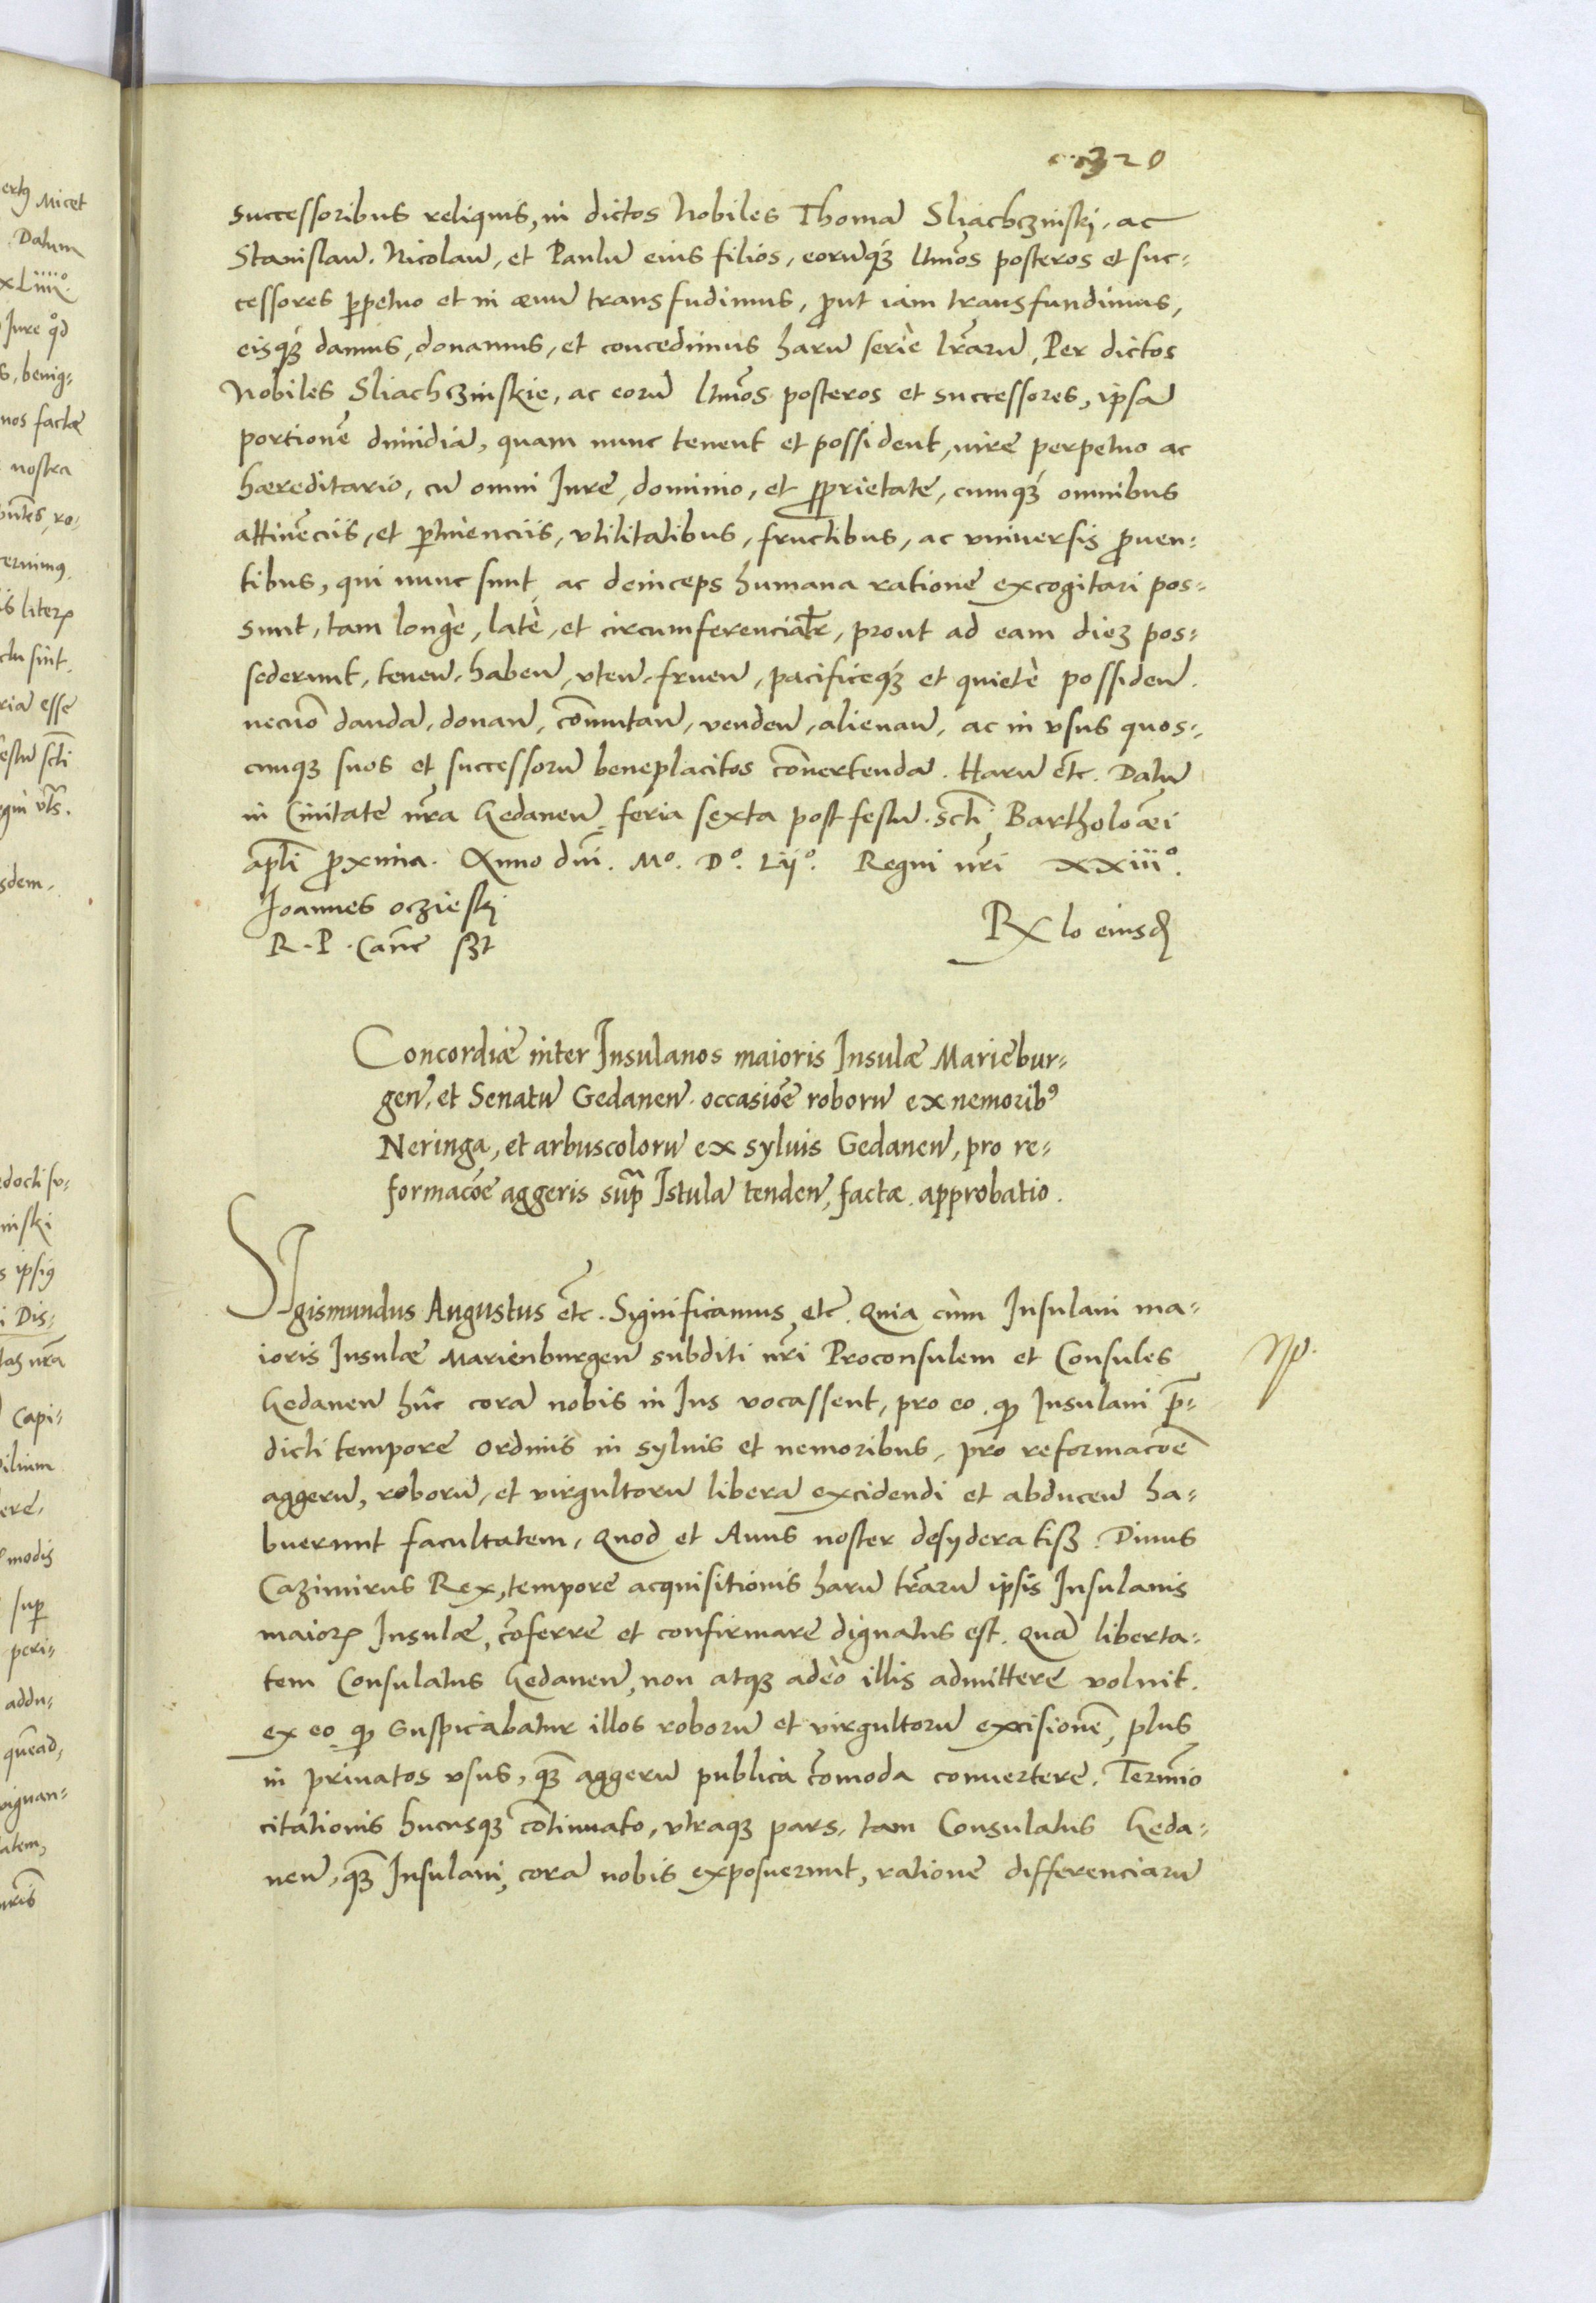 320
successoribus reliquis, in dictos Nobiles Thomā Sliachczinski, ac
Stanislaū, Nicolaū, et Paulū eius filios, eorūq́ꝫ lt̄imos posteros et suc-
cessores ꝑpetuo et in æuū transfudimus, ꝓut iam transfundimus,
eisq́ꝫ damus, donamus, et concedimus harū serie lr̄arū, Per dictos
Nobiles Sliachczinskie, ac eorū lt̄imos posteros et successores, ipsā
portionē dimidiā, quam nunc tenent et possident, iure perpetuo ac
hæreditario, cū omni Jure, dominio, et ꝓprietate, cumq́ꝫ omnibus
attinēciis, et ꝑtinenciis, vtilitatibus, fructibus, ac vniuersis ꝓuen-
tibus, qui nunc sunt, ac deinceps humana ratione excogitari pos-
sunt, tam longè, latè, et circumferencialr̄, prout ad eam dieꝫ pos-
sederunt, tenen̄, haben̄, vten̄, fruen̄, pacificeq́ꝫ et quietè possiden̄.
necnō dandā, donan̄, cōmutan̄, venden̄, alienan̄, ac in vsus quos-
cunqꝫ suos et successorū beneplacitos cōuertendā. Harū etc̄. Datū
in Ciuitate nr̄a Gedanen̄, feria sexta post festū scti Bartholomæi
apl̄i ꝓxima. Anno dn̄i. Mº. Dº. Lijº. Regni nr̄i xxiiiº.
Joannes oczieski
R. P. Canc̄ sst
Rx lo eiusd̄
Concordiæ inter Insulanos maioris Insulæ Mariēbur-
gen̄, et Senatū Gedanen̄. occasiōe roborū ex nemoribꝰ
Neringa, et arbuscolorū ex syluis Gedanen̄, pro re-
formacōe aggeris sup̄ Istulā tenden̄, factæ approbatio.
SIgismundus Augustus etc̄. Significamus etc̄. Quia cùm Insulani ma-
ioris Insulæ Marienburgen̄ subditi nr̄i Proconsulem et Consules
Gedanen̄ hūc corā nobis in Jus vocassent, pro eo qͥ Insulani p̄-
dicti tempore ordinis in syluis et nemoribus, pro reformacōe
aggerū, roborū, et virgultorū liberā excidendi et abducen̄ ha-
buerunt facultatem, Quod et Auus noster desyderatiss. Diuus
Cazimirus Rex, tempore acquisitionis harū tr̄arū ipsis Insulanis
maioꝝ Insulæ, cōferre et confirmare dignatus est. Quā liberta-
tem Consulatus Gedanen̄, non atqꝫ adeò illis admittere voluit.
ex eo qͥ suspicabatur illos roborū et virgultorū excisionē, plus
in priuatos vsus, qꝫ̄ aggerū publica cōmoda conuertere. Termīo
citationis hucusqꝫ cōtinuato, vtraqꝫ pars, tam Consulatus Geda-
nen̄, qꝫ̄ Insulani, corā nobis exposuerunt, ratione differenciarū